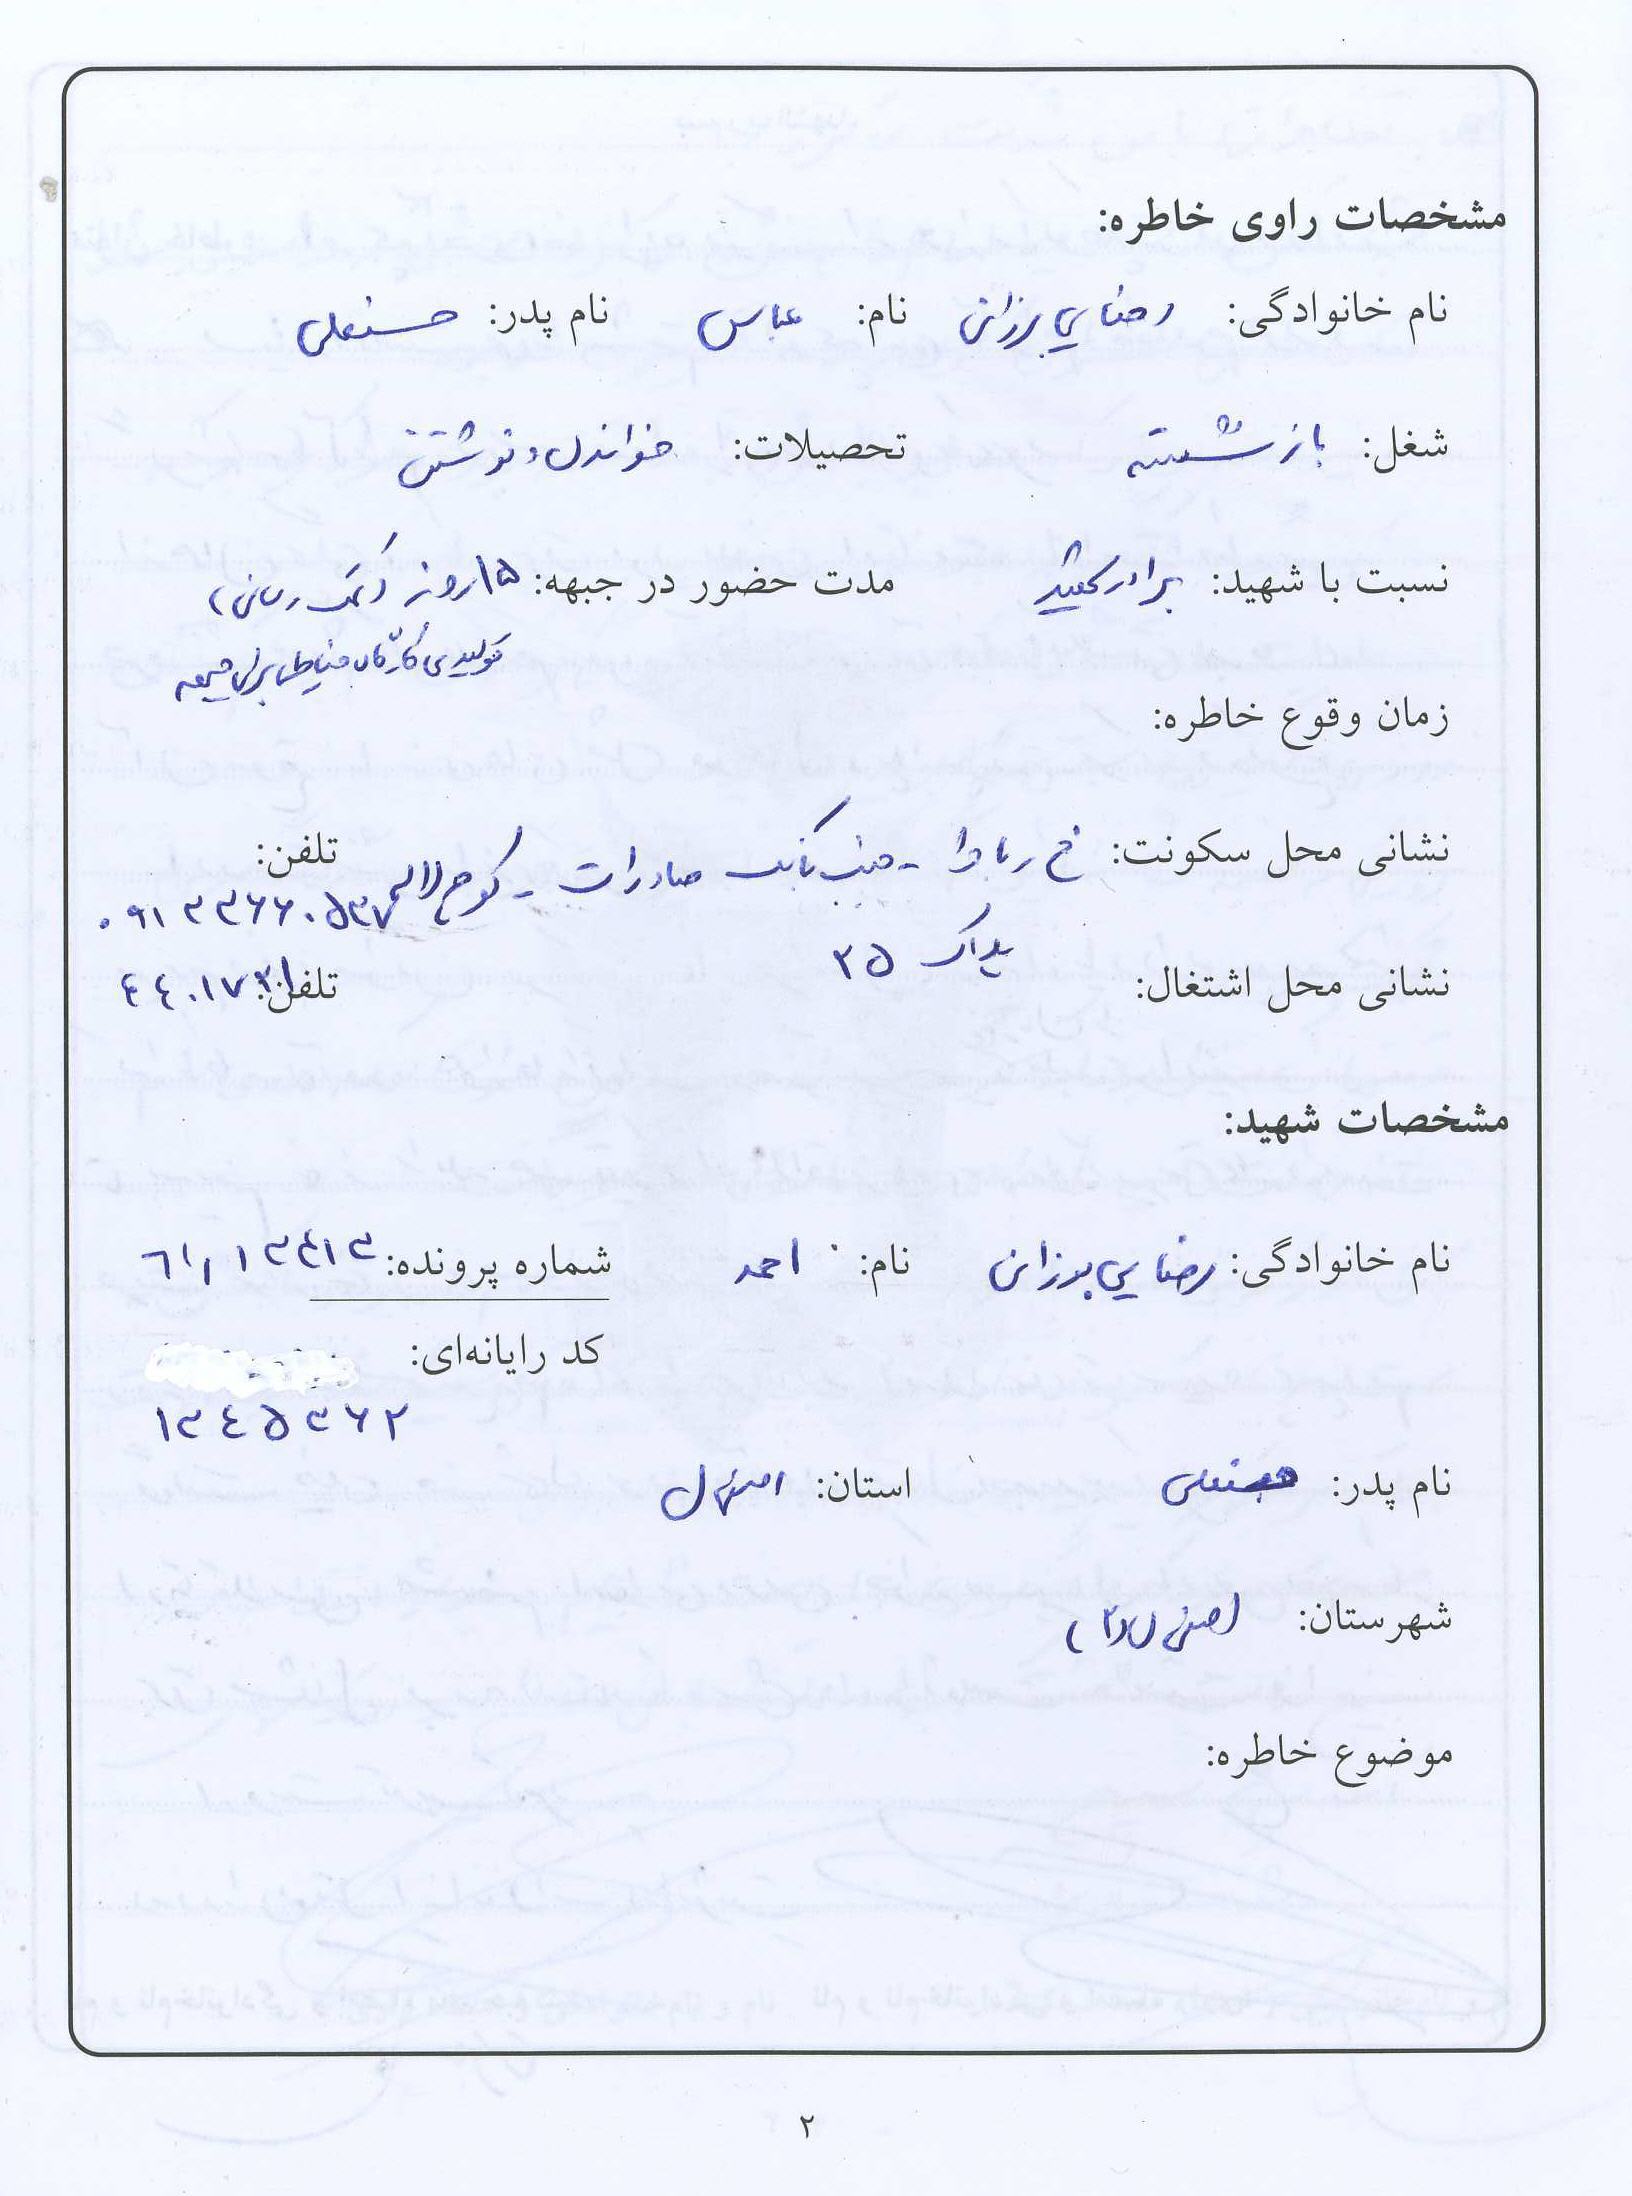 مشخصات راوی خاطره:
نام خانوادگی: رضایی برزانی نام: عباس نام پدر: حسنعلی
شغل: بازنشسته تحصیلات: خواندن و نوشتن
نسبت با شهید: برادر شهید مدت حضور در جبهه: ۱۵ روز (کمک رسانی)
تولیدی کارگاه خیاطی برای جبهه
زمان وقوع خاطره:
نشانی محل سکونت: خ رباط - جنب بانک صادرات - کوچه لاله تلفن:
پلاک ۳۵ ۰۹۱۳۳۶۶۰۵۳۷
نشانی محل اشتغال: تلفن: ۴۴۰۱۷۳۱
مشخصات شهید:
نام خانوادگی: رضایی برزانی نام: احمد شماره پرونده: ۶۱/۱۳۴۱۳
کد رایانه‌ای:
۱۳۴۵۳۶۲
نام پدر: حسنعلی استان: اصفهان
شهرستان: اصفهان (۲)
موضوع خاطره:
۲